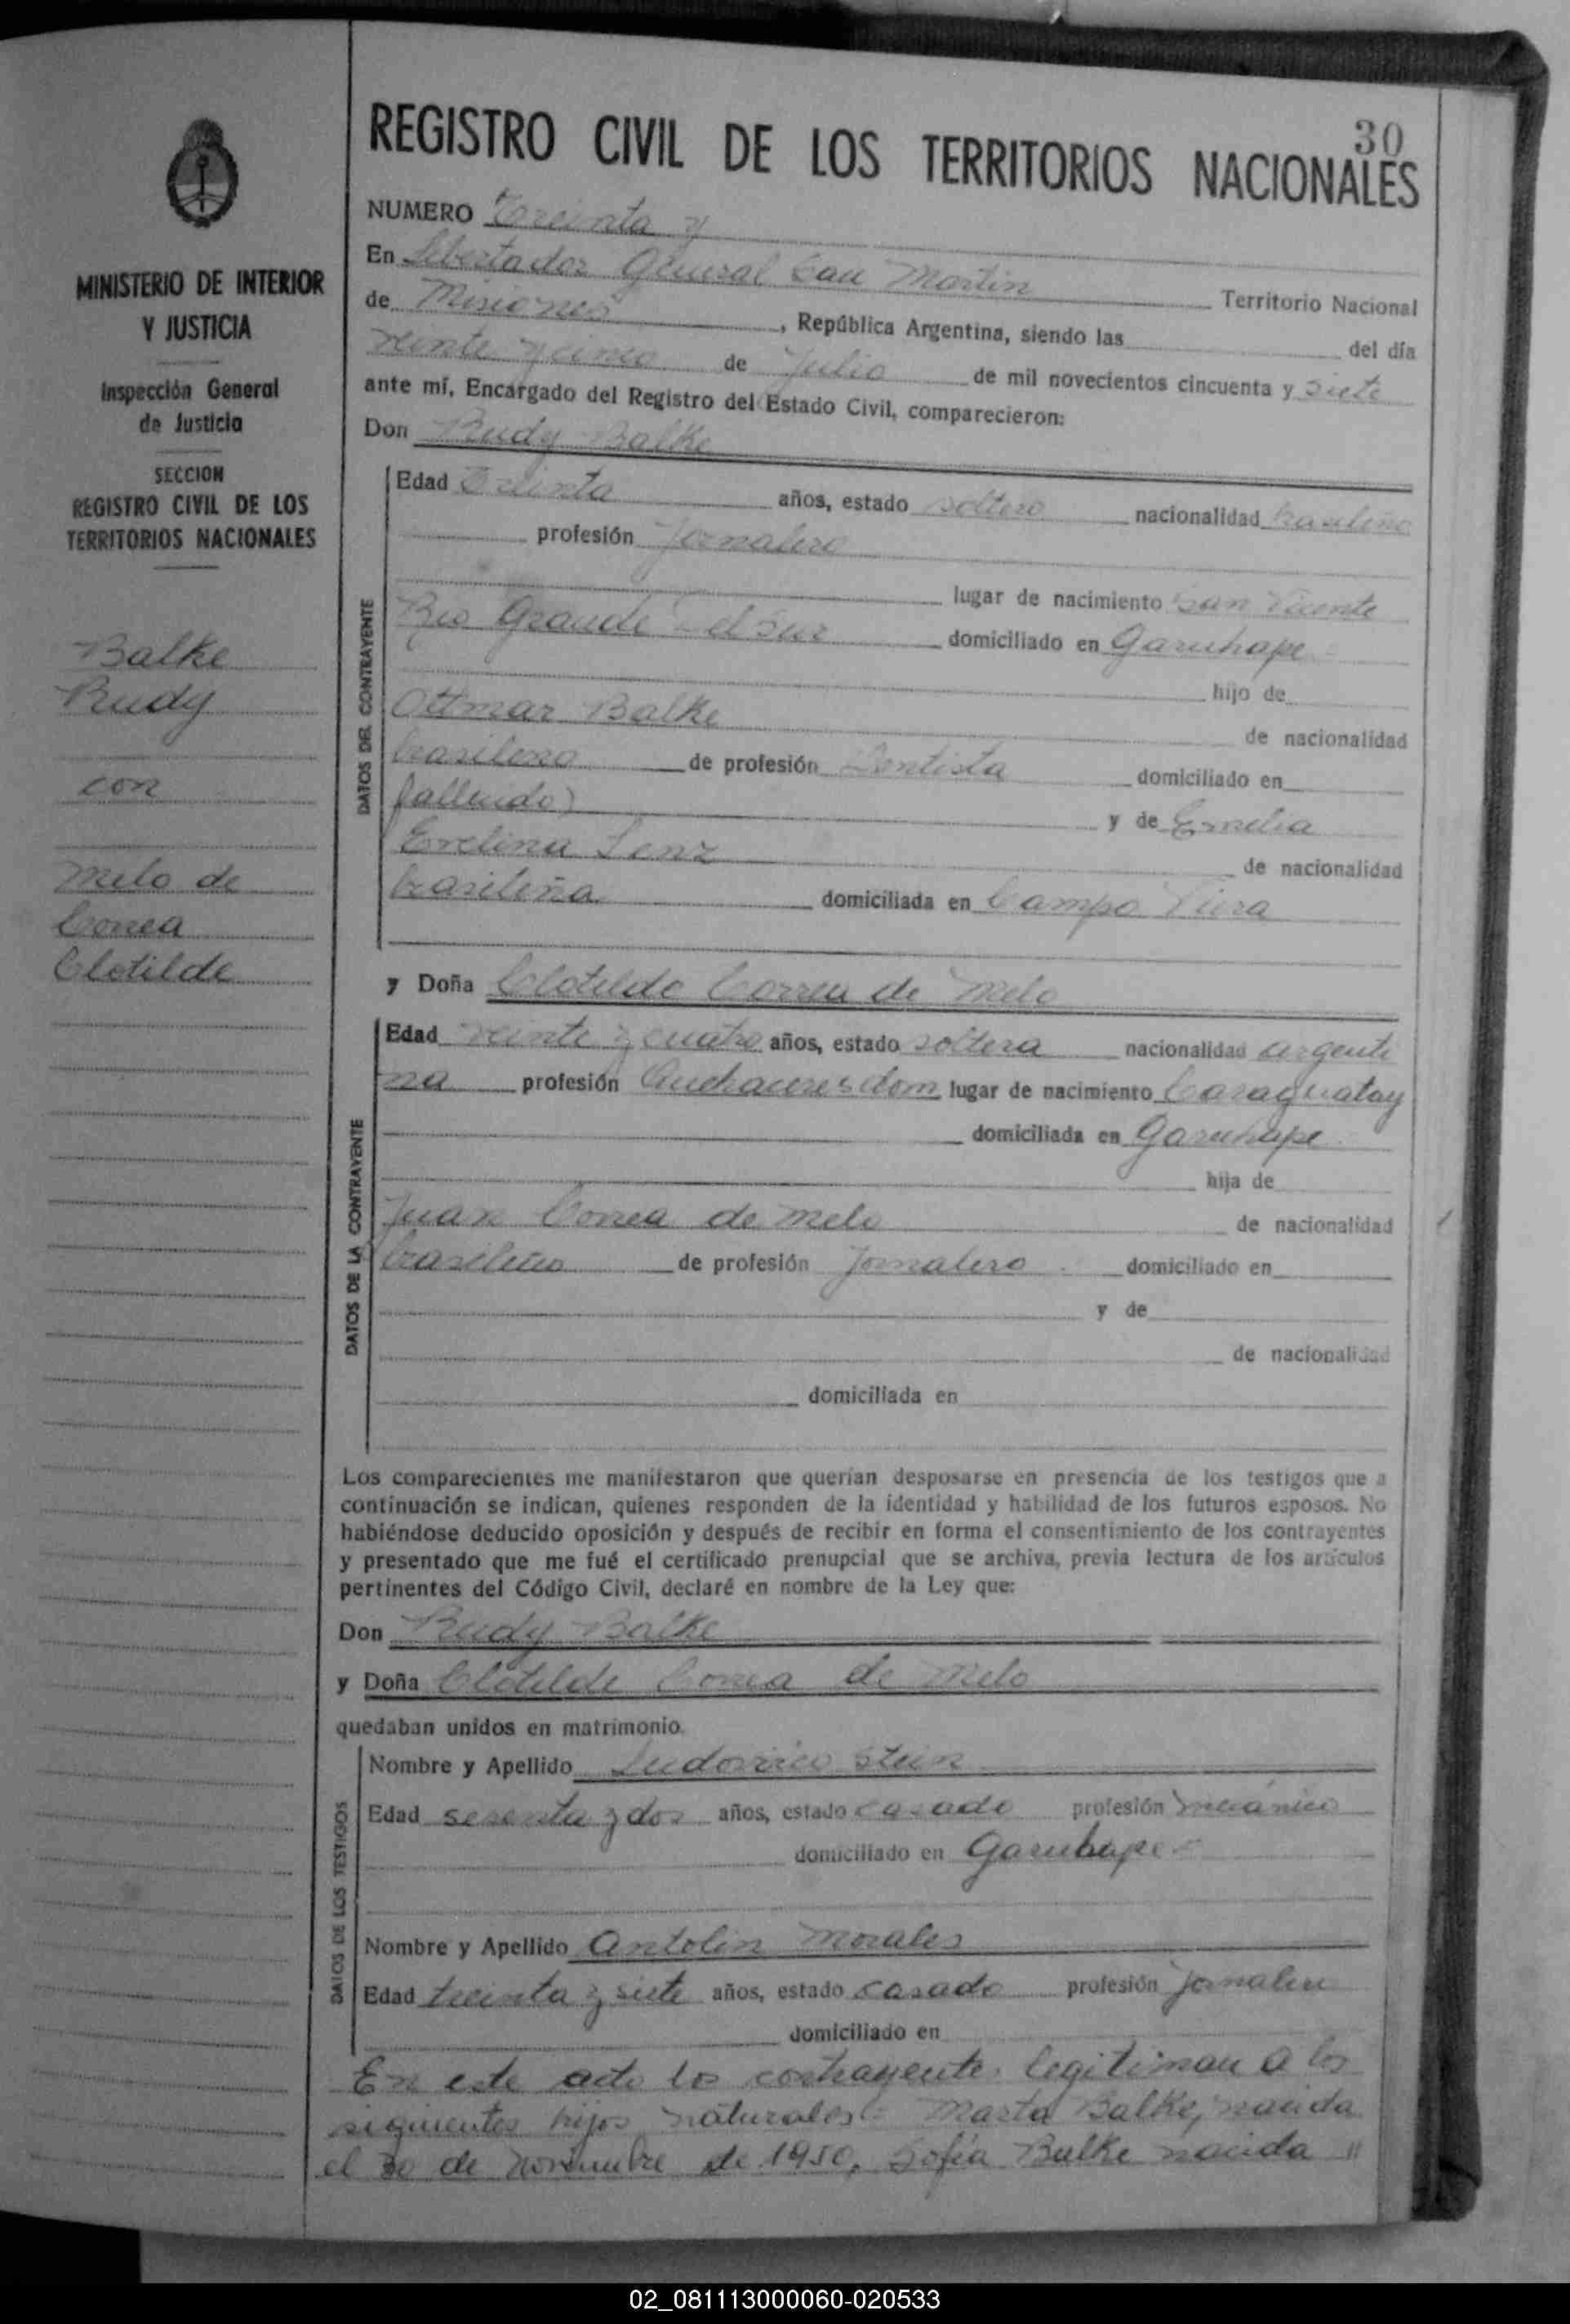 30
REGISTRO CIVIL DE LOS TERRITORIOS NACIONALES
MINISTERIO DE INTERIOR
Y JUSTICIA
Inspección General
de Justicia
SECCION
REGISTRO CIVIL DE LOS
TERRITORIOS NACIONALES
Balke
Rudy
con
Melo de
Correa
Clotilde
NUMERO Treinta y
En Libertador General San Martin Territorio Nacional
de Misiones, República Argentina, siendo las del día
veinte y cinco de Julio de mil novecientos cincuenta y siete
ante mí, Encargado del Registro del Estado Civil, comparecieron:
Don Rudy Balke
DATOS DEL CONTRAYENTE
Edad Treinta años, estado soltero nacionalidad brasileño
profesión Jornalero
lugar de nacimiento San Vicente
Rio Grande del Sur domiciliado en Garuhape
hijo de
Ottmar Balke de nacionalidad
brasilero de profesión Dentista domiciliado en
fallecido) y de Emelia
Evelina Lenz de nacionalidad
brasileña domiciliada en Campo Viera
y Doña Clotilde Correa de Melo
DATOS DE LA CONTRAYENTE
Edad veinte y cuatro años, estado soltera nacionalidad argenti
na profesión Quehaceres dom lugar de nacimiento Caraguatay
domiciliada en Garuhape
hija de
Juan Correa de Melo de nacionalidad
brasileño de profesión Jornalero domiciliado en
y de
de nacionalidad
domiciliada en
Los comparecientes me manifestaron que querían desposarse en presencia de los testigos que a
continuación se indican, quienes responden de la identidad y habilidad de los futuros esposos. No
habiéndose deducido oposición y después de recibir en forma el consentimiento de los contrayentes
y presentado que me fué el certificado prenupcial que se archiva, previa lectura de los artículos
pertinentes del Código Civil, declaré en nombre de la Ley que:
Don Rudy Balke
y Doña Clotilde Correa de Melo
quedaban unidos en matrimonio.
DATOS DE LOS TESTIGOS
Nombre y Apellido Ludovico Stein
Edad sesenta y dos años, estado casado profesión mecánico
domiciliado en Garuhape
Nombre y Apellido Antolin Morales
Edad treinta y siete años, estado casado profesión Jornalero
domiciliado en
En este acto los contrayentes legitiman a los
siguientes hijos naturales: Marta Balke, nacida
el 30 de noviembre de 1950, Sofía Balke nacida "
02_081113000060-020533